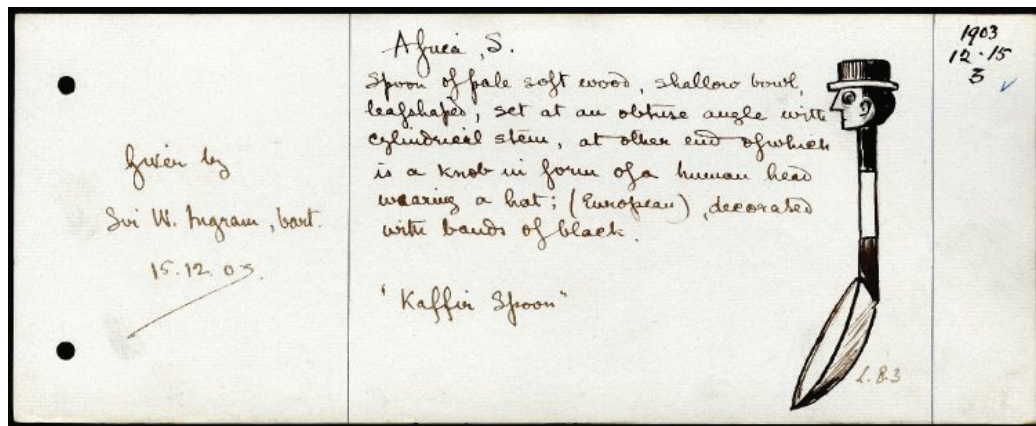 Given by
Sir W. Ingram, bart.
15.12.03.
Africa, S.
Spoon of pale soft wood, shallow bowl,
leafshaped, set at an obtuse angle with
cylindrical stem, at other end of which
is a knob in form of a human head
wearing a hat; (European), decorated
with bands of black.
"Kaffir Spoon"
L. 8.3
1903
12.15
3